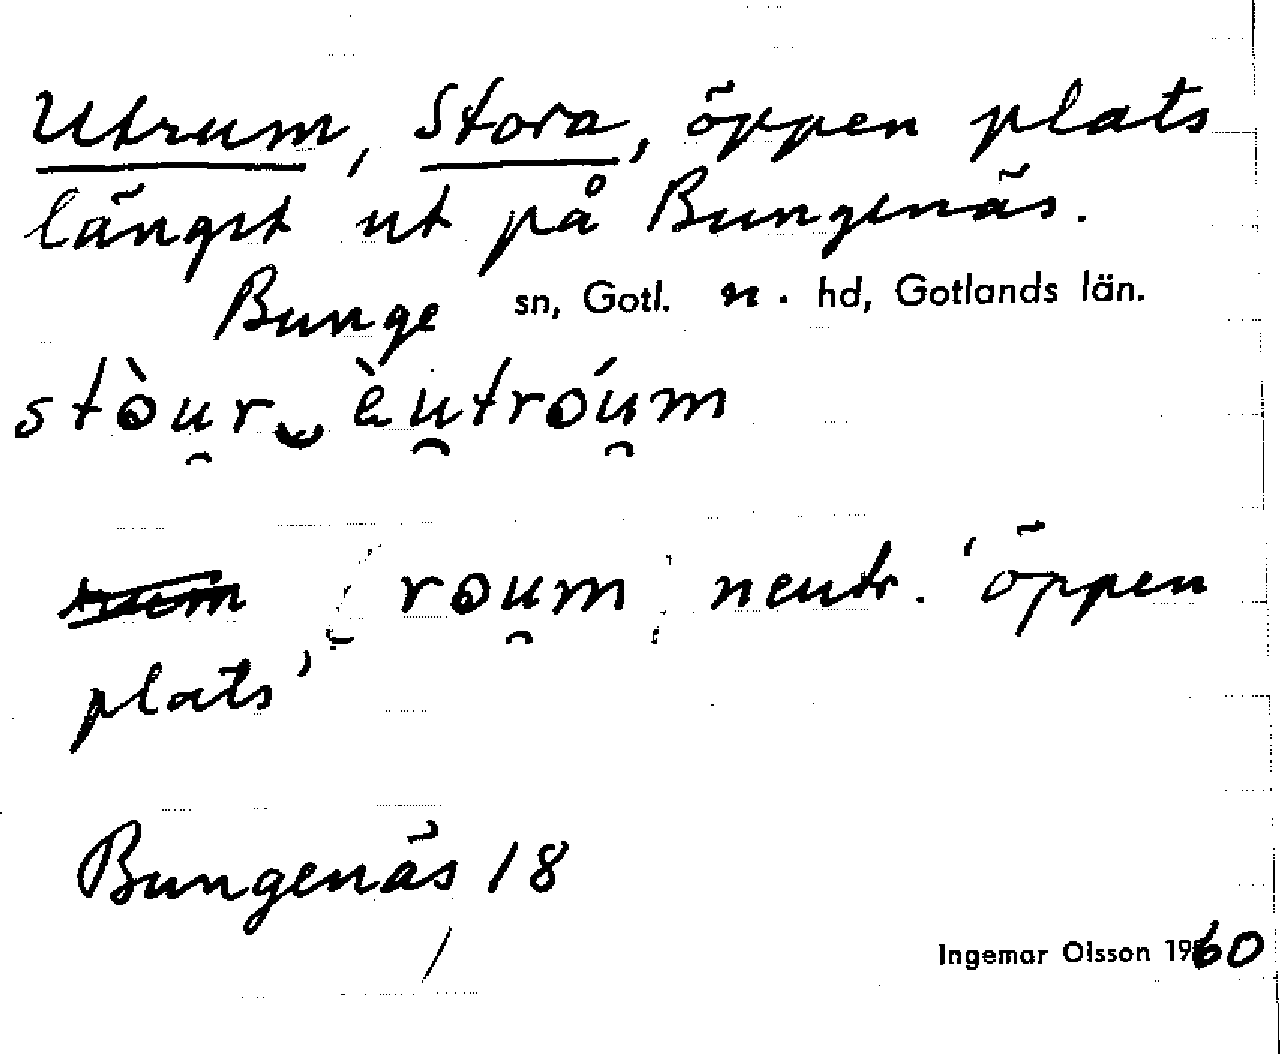 Utrum, Stora, öppen plats
längst ut på Bungenäs.
Bunge sn, Gotl. n. hd, Gotlands län.
stòu̯r‿èu̯tróu̯m
rou̯m neutr. 'öppen
plats'
Bungenäs 18
Ingemar Olsson 1960